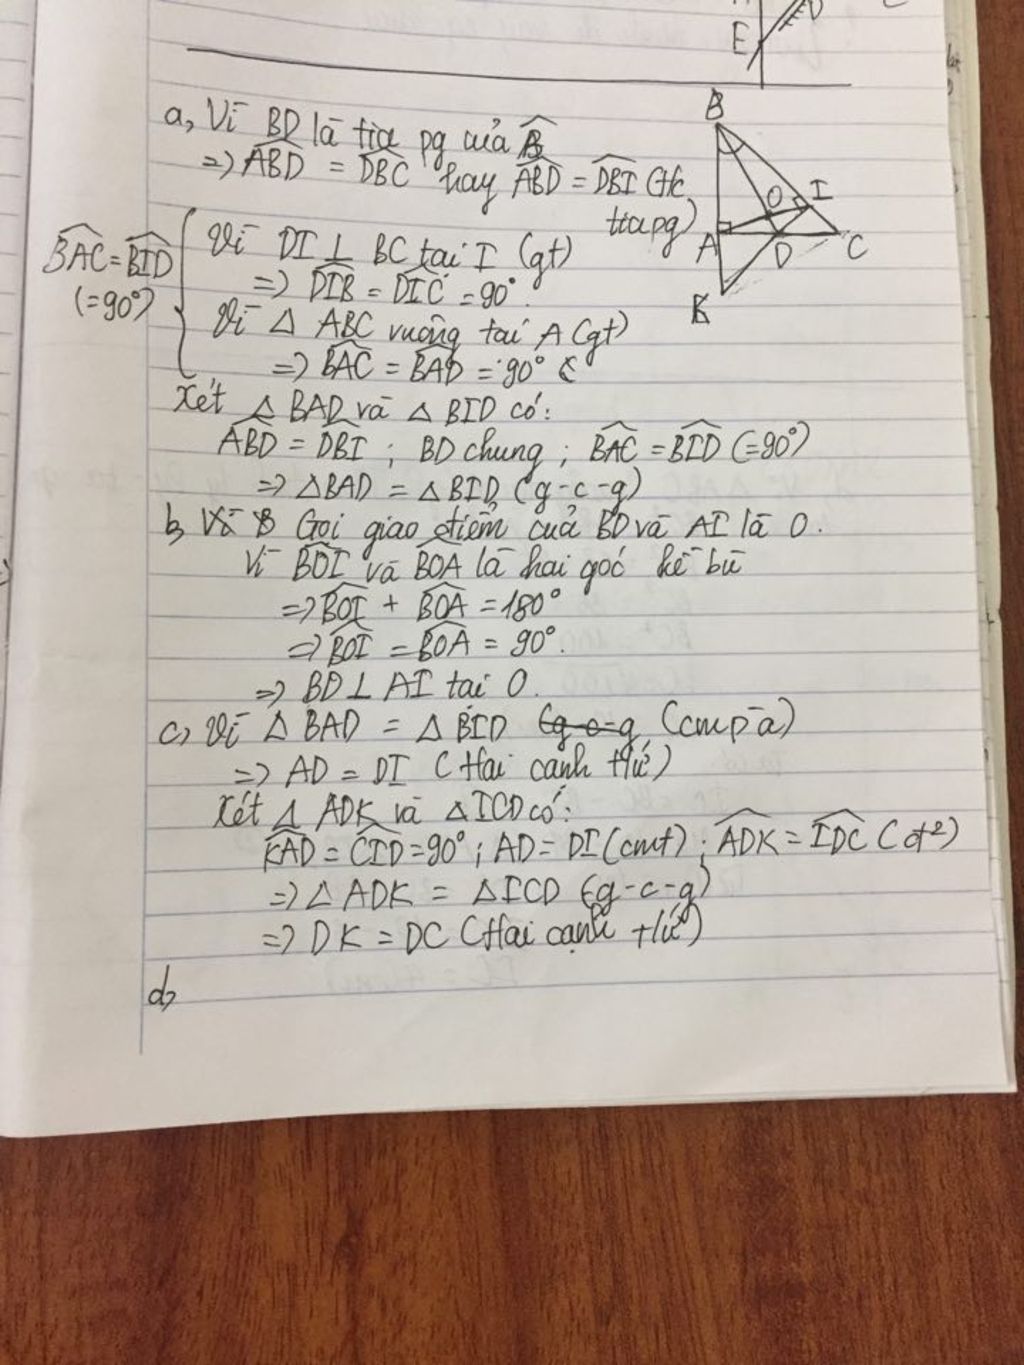 E
D
C
B
O
I
A
D
C
K
a, Vì BD là tia pg của B̂
=> ABD = DBC hay ABD = DBI (tc
tia pg)
BAC = BID
(=90°)
Vì DI ⊥ BC tại I (gt)
=> DIB = DIC = 90°.
Vì Δ ABC vuông tại A (gt)
=> BAC = BAD = 90°
Xét Δ BAD và Δ BID có:
ABD = DBI ; BD chung ; BAC = BID (=90°)
=> ΔBAD = ΔBID (g-c-g)
b, Gọi giao điểm của BD và AI là O.
Vì BOI và BOA là hai góc kề bù
=> BOI + BOA = 180°
=> BOI = BOA = 90°.
=> BD ⊥ AI tại O.
c, Vì Δ BAD = Δ BID (g-c-g (cmp a)
=> AD = DI (Hai cạnh tứ)
Xét Δ ADK và Δ ICD có:
KAD = CID = 90° ; AD = DI (cmt) ; ADK = IDC (đ²)
=> Δ ADK = Δ ICD (g-c-g)
=> DK = DC (Hai cạnh tứ)
d,